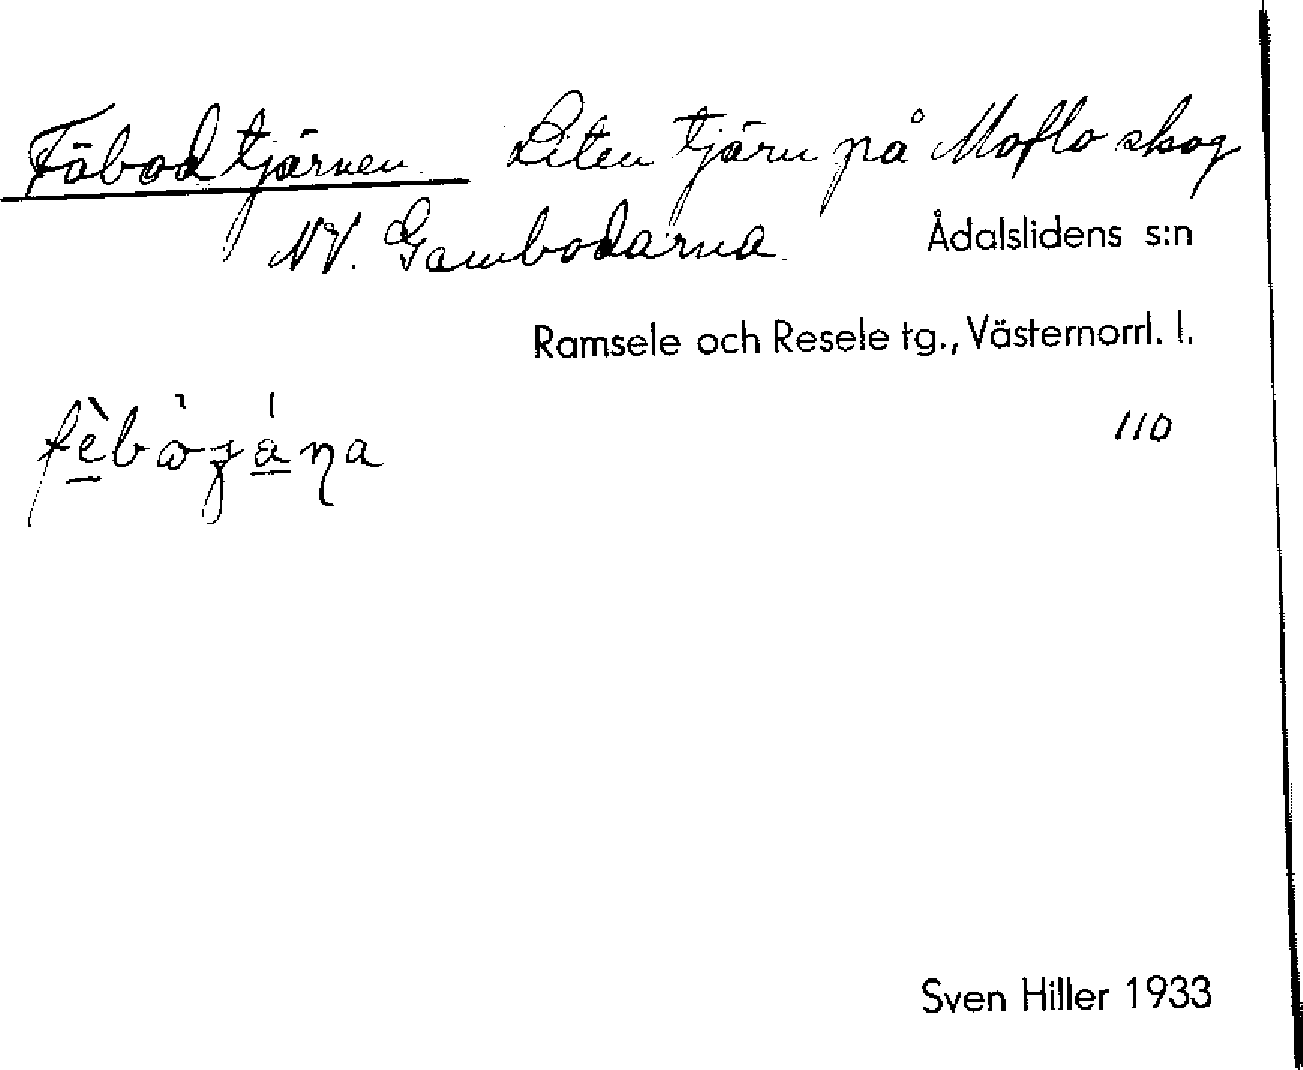 Fäbodtjärnen Liten tjärn på Moflo skog
NV. Gambodarna. Ådalslidens s:n
Ramsele och Resele tg., Västernorrl. l.
110
Sven Hiller 1933